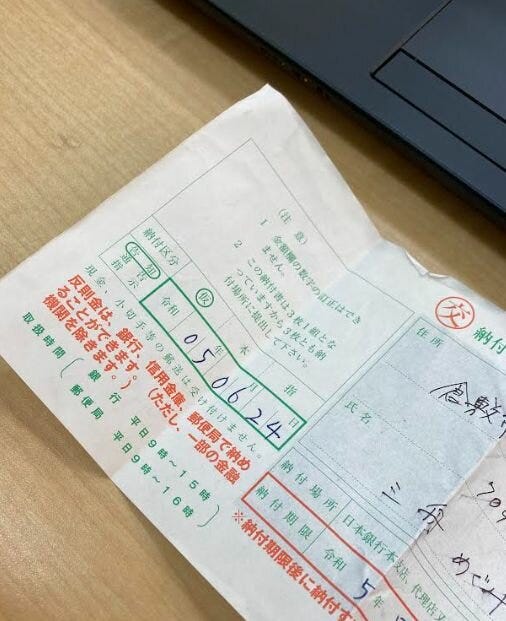 （注意）
1 金額欄の数字の訂正はでき
ません。
2 この納付書は3枚1組とな
っていますから3枚とも納
付場所に提出して下さい。
納付区分
告知
通告
指示
仮
本
令和 年 月 日
050624
指
現金、小切手等の郵送は受け付けません。
反則金は、銀行、信用金庫、郵便局で納め
ることができます。（ただし、一部の金融
機関を除きます。）
取扱時間
銀行 平日9時～15時
郵便局 平日9時～16時
交
納付
住所
倉敷市
氏名
三
めぐみ
納付場所
日本銀行本支店、代理店又
納付期限
令和5年
※納付期限後に納付す